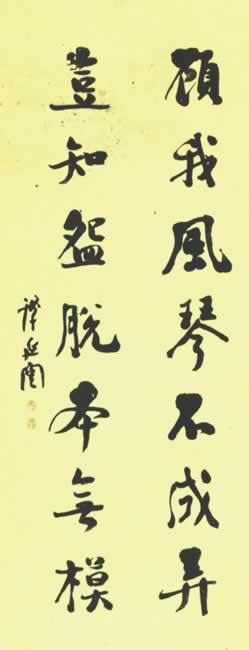 顧我風琴不成弄
豈知盌脫本無模
譚延闓